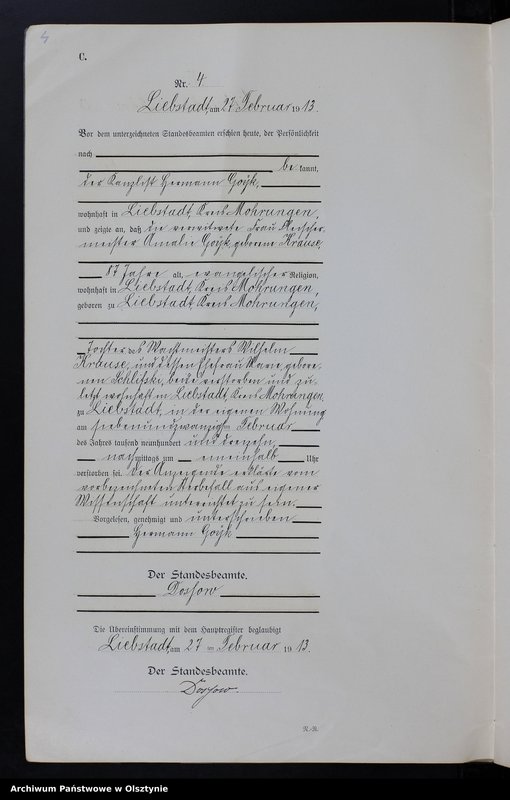 4
C.
Nr. 4
Liebstadt, am 27 Februar 1913.
Vor dem unterzeichneten Standesbeamten erschien heute, der Persönlichkeit
nach
be kannt,
der Kanzlist Hermann Goijk,
wohnhaft in Liebstadt, Kreis Mohrungen,
und zeigte an, daß die verwitwete Frau
meister Amalie Goijk geborene Krause,
87 Jahre alt, evangelischer Religion,
wohnhaft in Liebstadt, Kreis Mohrungen,
geboren zu Liebstadt, Kreis Mohrungen,
Tochter des Wachtmeisters Wilhelm
Krause, und dessen Ehefrau Marie gebore-
nen Schlifski, beide verstorben und zu-
letzt wohnhaft in Liebstadt, Kreis Mohrungen,
zu Liebstadt, in der eigenen Wohnung
am siebenundzwanzigsten Februar
des Jahres tausend neunhundert und dreizehn,
nachmittags um eineinhalb Uhr
verstorben sei. Der Anzeigende erklärte vom
vorbezeichneten Sterbefall aus eigener
Wissenschaft unterrichtet zu sein.
Vorgelesen, genehmigt und unterschrieben
Hermann Goijk
Der Standesbeamte.
Dossow
Die Übereinstimmung mit dem Hauptregister beglaubigt
Liebstadt, am 27 ten Februar 1913.
Der Standesbeamte.
Dossow.
Archiwum Państwowe w Olsztynie